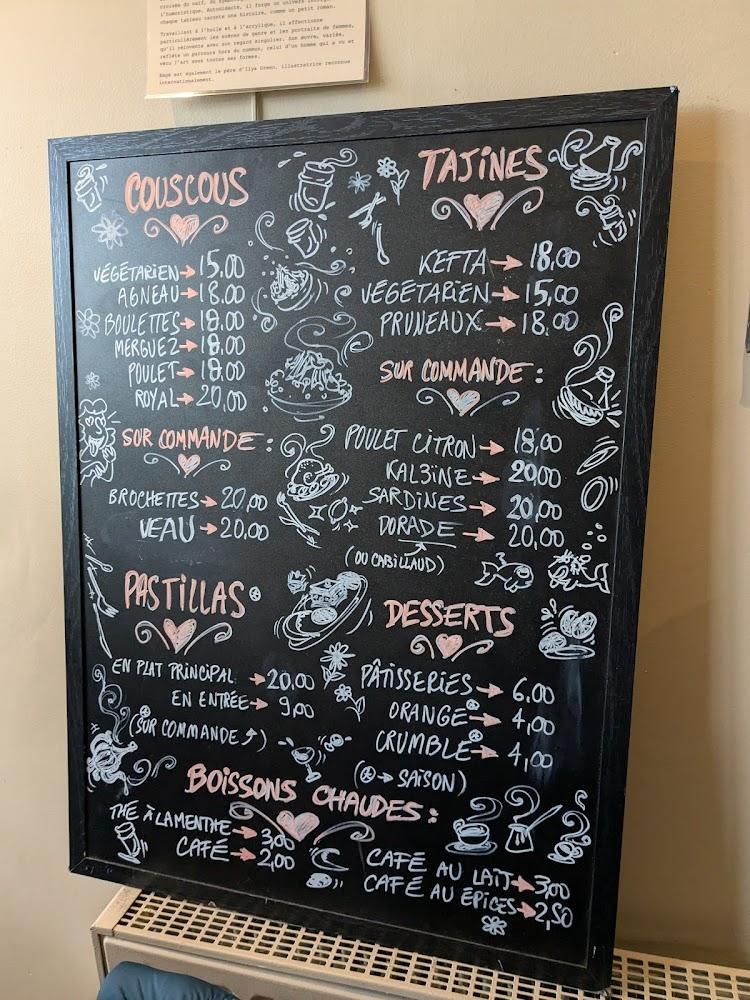 l'humoristique. Autodidacte, il forge un univers
chaque tableau raconte une histoire, comme un petit roman.
Travaillant à l'huile et à l'acrylique, il affectionne
particulièrement les scènes de genre et les portraits de femmes,
qu'il réinvente avec son regard singulier. Son œuvre, variée,
reflète un parcours hors du commun, celui d'un homme qui a vu et
vécu l'art sous toutes ses formes.
est également le père d'Ilya Green, illustratrice reconnue
internationalement.
COUSCOUS
VÉGÉTARIEN → 15,00
AGNEAU → 18,00
BOULETTES → 18,00
MERGUEZ → 18,00
POULET → 18,00
ROYAL → 20,00
SUR COMMANDE :
BROCHETTES → 20,00
VEAU → 20,00
PASTILLAS
EN PLAT PRINCIPAL → 20,00
EN ENTRÉE → 9,00
(SUR COMMANDE)
TAJINES
KEFTA → 18,00
VÉGÉTARIEN → 15,00
PRUNEAUX → 18,00
SUR COMMANDE :
POULET CITRON → 18,00
KAL3INE → 20,00
SARDINES → 20,00
DORADE → 20,00
(OU CABILLAUD)
DESSERTS
PÂTISSERIES → 6,00
ORANGE → 4,00
CRUMBLE → 4,00
(→ SAISON)
BOISSONS CHAUDES :
THÉ À LA MENTHE → 3,00
CAFÉ → 2,00
CAFÉ AU LAIT → 3,00
CAFÉ AU ÉPICES → 2,50